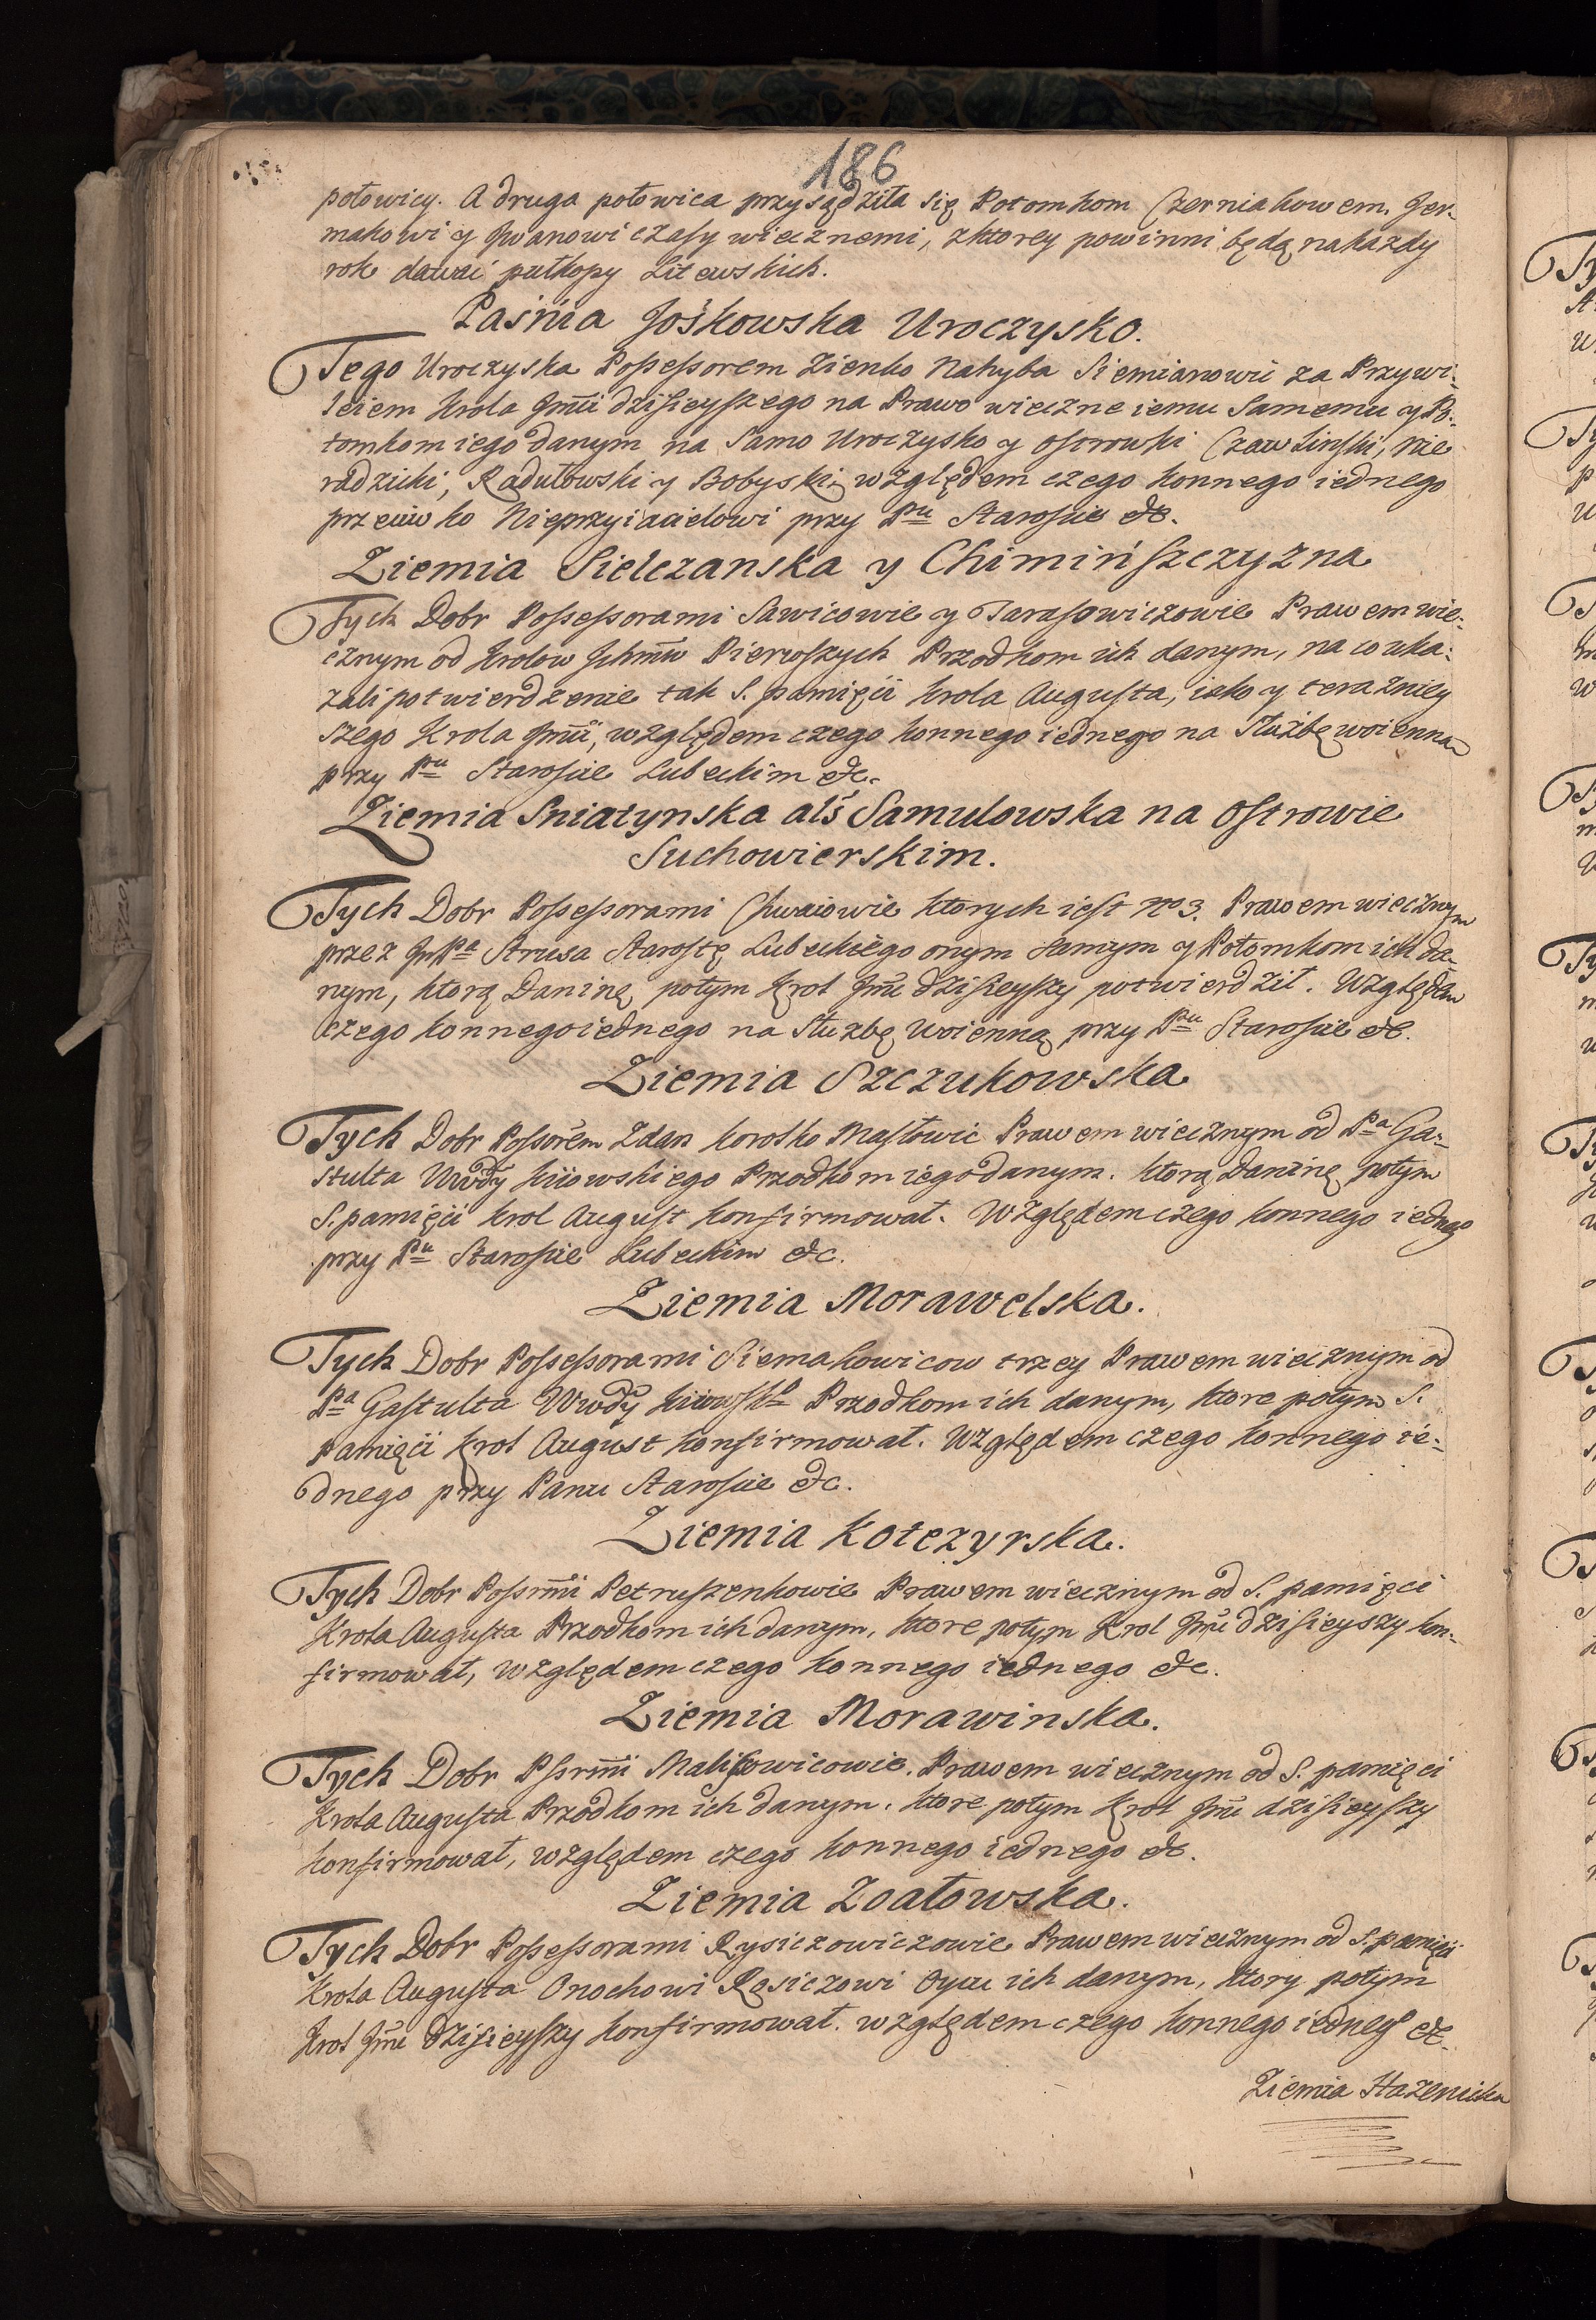 186
połowicy. A druga połowica przysądziła się Potomkom Czerniakowem, Jer-
makowi y Jwanowi czasy wiecznemi, zktorey powinni będą nakazdy
rok dawać pułkopy Litewskich.
Paśnia Jośkowska Uroczysko.
Tego Uroczyska Possessorem Zienko Nakyba Siemianowic za Przywi-
leiem Krola Jmći dzisieyszego na Prawo wieczne iemu Samemu y Po-
tomkom iego danym na Samo Uroczysko y ostrowki Czawlinski, Nie
radzicki, Radułowski y Bobyski, względem czego konnego iednego
przeciwko Nieprzyiacielowi przy Pu Staroscie &c.
Ziemia Sielczanska y Chimińszczyzna
Tych Dobr Possessorami Sawicowie y Tarasowiczowie Prawem wie-
cznym od Krolow Jchmw Pierwszych Przodkom ich danym, na co uka-
zali potwierdzenie tak S. pamięci krola Augusta, iako y teraznieÿ
szego Krola Jmći, względem czego konnego iednego na Służbę woienną
przy Pu Staroscie Lubeckim &c.
Ziemia Sniatynska als Samulowska na Ostrowie
Suchowierskim.
Tych Dobr Possessorami Chwaiowie ktorych iest no 3. Prawem wiecznym
przez JnPa Strusa Starostę Lubeckiego onym samym y Potomkom ich da-
nym, ktorą Daninę potym Krol Jmć dzisieyszy potwierdził. Względem
czego konnego iednego na Służbę woienną przy Pu Staroscie &c.
Ziemia Szczukowska
Tych Dobr Possorem Zdan korotko Masłowic Prawem wiecznym od Pa Ga-
stulta Wwdy kiiowskiego Przodkom iego danym. ktorą daninę potym
S. pamięci krol August konfirmował. Względem czego konnego iednego
przy Pu Staroscie Lubeckim &c.
Ziemia Morawelska.
Tych Dobr Possessorami Siemakowicow trzey Prawem wiecznym od
Pa Gastulta Wwdy kiiowsko Przodkom ich danym, ktore potym S.
pamięci krol August konfirmował. Względem czego konnego ie-
dnego przy Panu Staroscie &c.
Ziemia Kotczyrska.
Tych Dobr Possrmi Petruszenkowie Prawem wiecznym od S. pamięci
Krola Augusta Przodkom ich danym, ktore potym Krol Jmć dzisieyszy kon-
firmował, względem czego konnego iednego &c.
Ziemia Morawinska.
Tych Dobr Pssrmi Malisowicowie, Prawem wiecznym od S. pamięci
Krola Augusta Przodkom ich danym. ktore potym krol Jmć dzisieyszy
konfirmował, względem czego konnego iednego &c.
Ziemia Zoałowska.
Tych Dobr Possessorami Rysiczowiczowie Prawem wiecznym od S. pamięci
Krola Augusta Onochowi Rysiczowi Oycu ich danym, ktory potym
Krol Jmć dzisieyszy konfirmował. względem czego konnego iedneg &c.
Ziemia